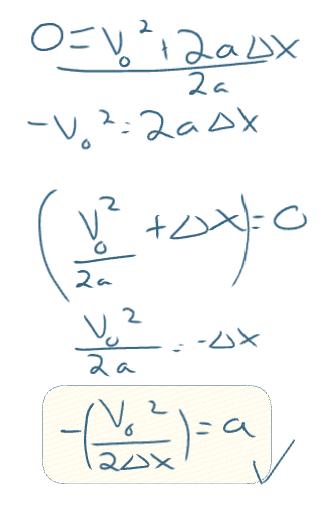 0 = V₀² + 2aΔx
2a
-V₀² = 2aΔx
(V₀²/2a + Δx) = 0
V₀²/2a = -Δx
-(V₀²/2Δx) = a ✓